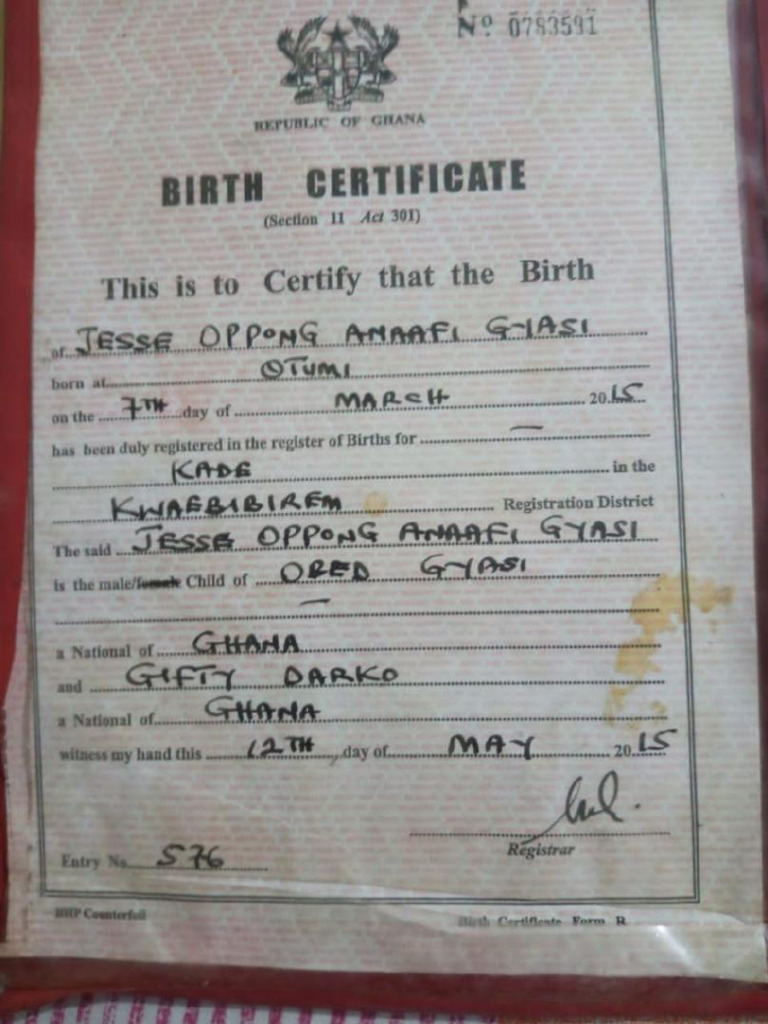 Nº 0783591
REPUBLIC OF GHANA
BIRTH CERTIFICATE
(Section 11 Act 301)
This is to Certify that the Birth
of JESSE OPPONG ANAAFI GYASI
born at OTUMI
on the 7TH day of MARCH 2015
has been duly registered in the register of Births for —
KADE in the
KWAEBIBIREM Registration District
The said JESSE OPPONG ANAAFI GYASI
is the male/female Child of ORED GYASI
—
a National of GHANA
and GIFTY DARKO
a National of GHANA
witness my hand this 12TH day of MAY 2015
Registrar
Entry No. 576
Counterfoil
Birth Certificate Form R